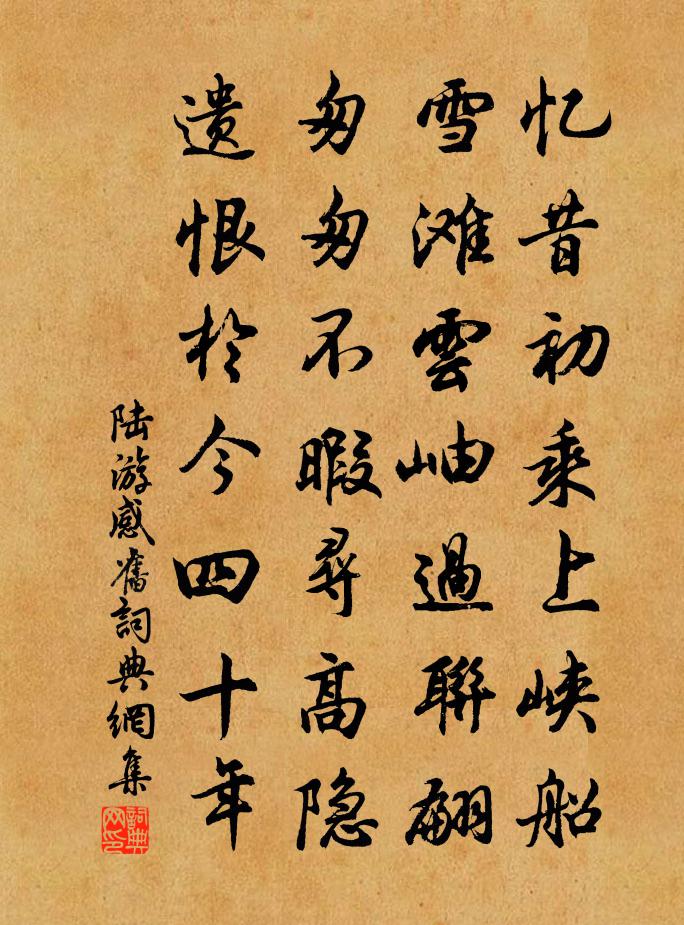 忆昔初乘上峡船
雪滩雲岫過聯翩
匆匆不暇尋高隐
遗恨於今四十年
陆游感舊詞典網集
詞典网印